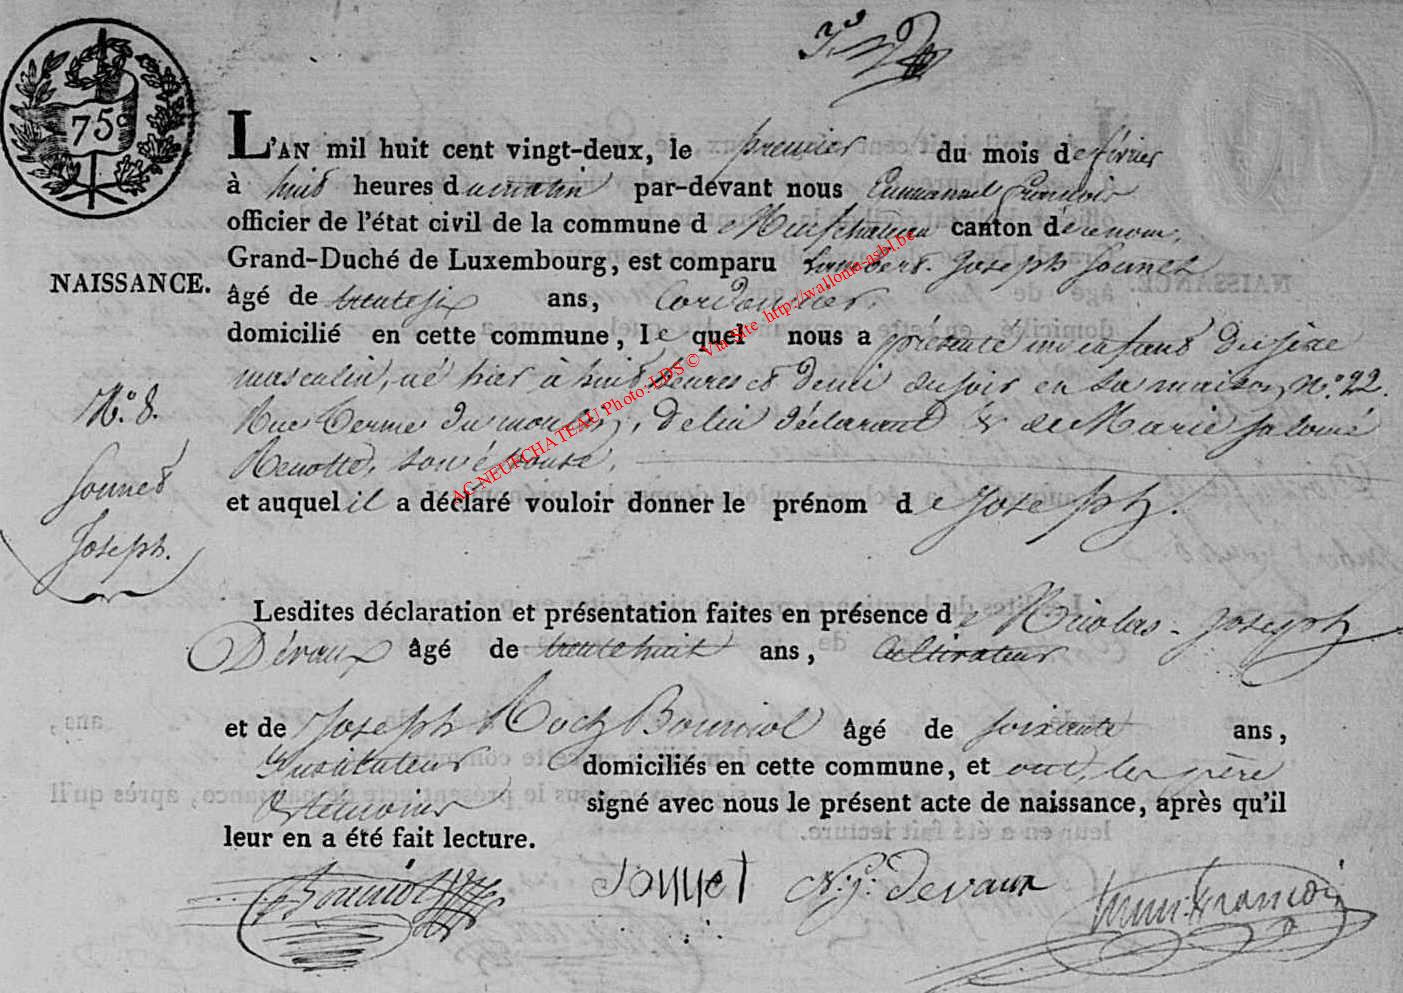 75c
L'AN mil huit cent vingt-deux, le premier du mois de février
à huit heures du matin par-devant nous Emmanuel François
officier de l'état civil de la commune de Neufchateau canton de renom,
NAISSANCE.
Grand-Duché de Luxembourg, est comparu Lambert Joseph Jounet
âgé de trente six ans, Cordonnier,
domicilié en cette commune, lequel nous a présenté un enfant du sexe
masculin, né hier à huit heures et demi du soir en sa maison, N.º 22.
Rue Terme du moulin, de lui déclarant & de Marie Salomé
Henotte, son épouse,
et auquel il a déclaré vouloir donner le prénom de Joseph.
N.º 8.
Jounet
Joseph.
Lesdites déclaration et présentation faites en présence de Nicolas-Joseph
Dévaux âgé de trente huit ans, Cultivateur
et de Joseph Roch Bouriol âgé de soixante ans,
Instituteur domiciliés en cette commune, et ont, les père
& témoins signé avec nous le présent acte de naissance, après qu'il
leur en a été fait lecture.
Jounet N:J: Devaux Emm. François
AG NEUFCHATEAU Photo: LDS © Via Site http://wallonia-asbl.be